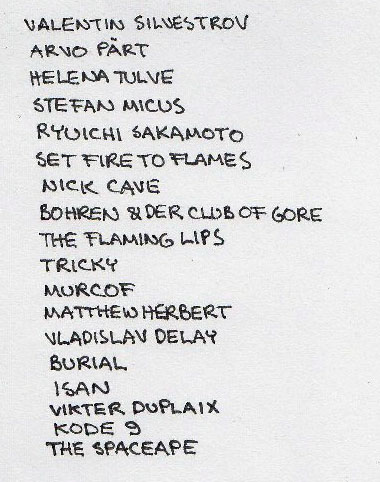 VALENTIN SILVESTROV
ARVO PÄRT
HELENA TULVE
STEFAN MICUS
RYUICHI SAKAMOTO
SET FIRE TO FLAMES
NICK CAVE
BOHREN & DER CLUB OF GORE
THE FLAMING LIPS
TRICKY
MURCOF
MATTHEW HERBERT
VLADISLAV DELAY
BURIAL
ISAN
VIKTER DUPLAIX
KODE 9
THE SPACEAPE